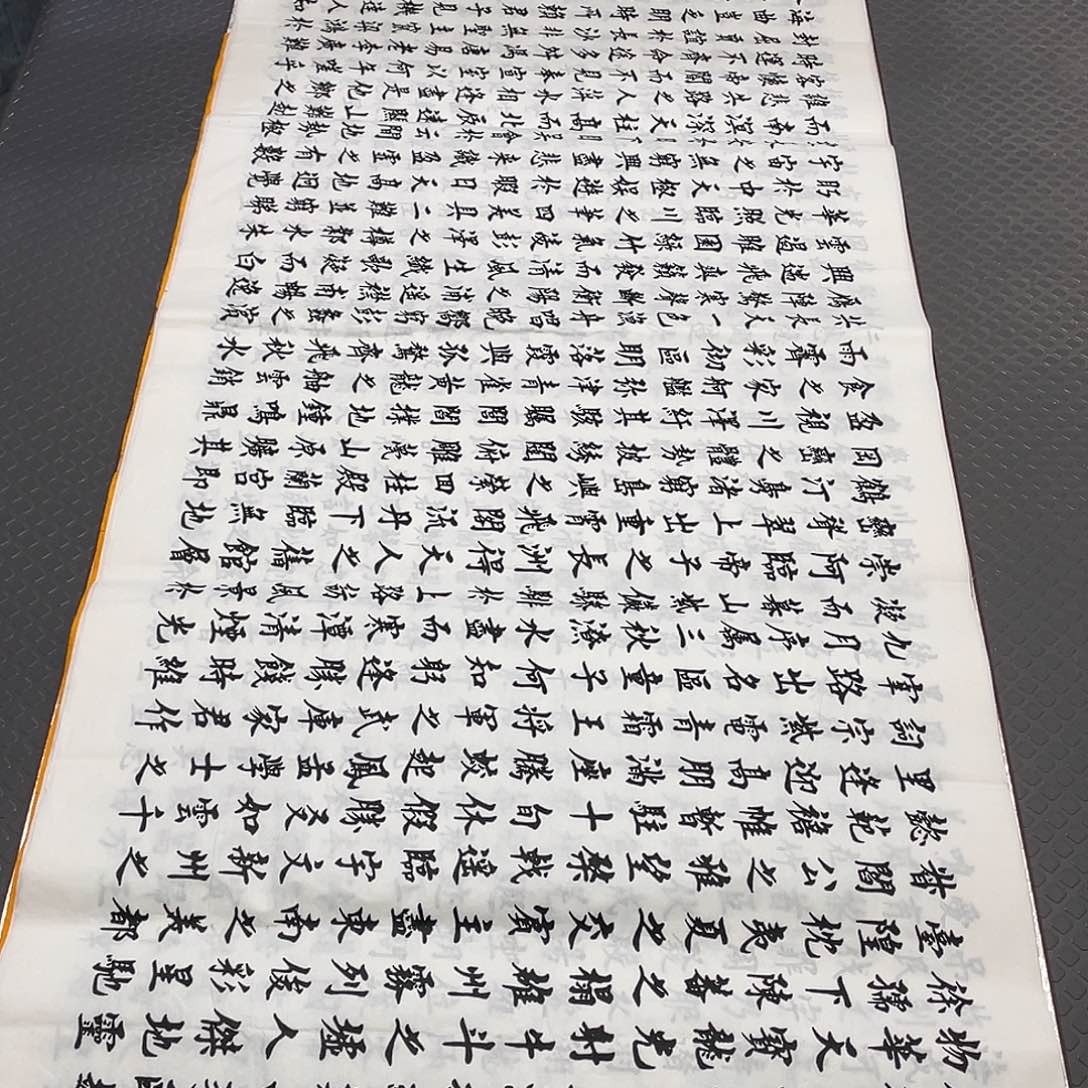 物華天寶龍光射牛斗之墟人傑地靈
徐孺下陳蕃之榻雄州霧列俊彩星馳
臺隍枕夷夏之交賓主盡東南之美都
督閻公之雅望棨戟遙臨宇文新州之
懿範襜帷暫駐十旬休假勝友如雲千
里逢迎高朋滿座騰蛟起鳳孟學士之
詞宗紫電青霜王將軍之武庫家君作
宰路出名區童子何知躬逢勝餞時維
九月序屬三秋潦水盡而寒潭清煙光
凝而暮山紫儼驂騑於上路訪風景於
崇阿臨帝子之長洲得天人之舊館層
巒聳翠上出重霄飛閣流丹下臨無地
鶴汀鳧渚窮島嶼之縈回桂殿蘭宮即
岡巒之體勢披繡闥俯雕甍山原曠其
盈視川澤紆其駭矚閭閻撲地鐘鳴鼎
食之家舸艦彌津青雀黃龍之舳雲銷
雨霽彩徹區明落霞與孤鶩齊飛秋水
共長天一色漁舟唱晚響窮彭蠡之濱
雁陣驚寒聲斷衡陽之浦遙襟甫暢逸
興遄飛爽籟發而清風生纖歌凝而白
雲遏睢園綠竹氣凌彭澤之樽鄴水朱
華光照臨川之筆四美具二難並窮睇
眄於中天極娛遊於暇日天高地迥覺
宇宙之無窮興盡悲來識盈虛之有數
而南溟深天柱高而北辰遠關山難
誰悲失路之人萍水相逢盡是他鄉之
客懷帝閽而不見奉宣室以何年嗟乎
時運不齊命途多舛馮唐易老李廣難
封屈賈誼於長沙非無聖主竄梁鴻於
海曲豈乏明時所賴君子見機達人知